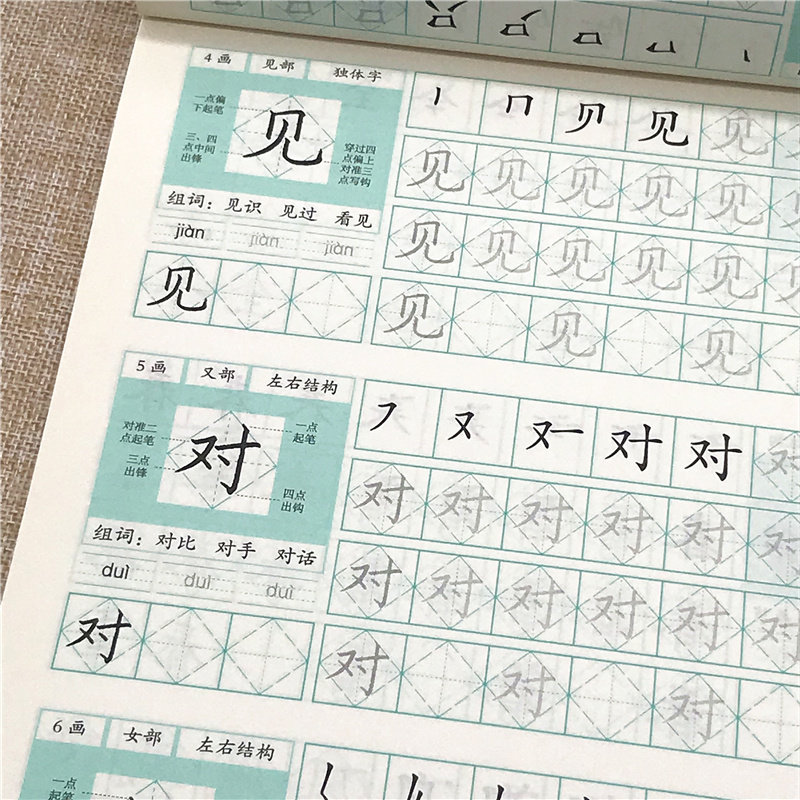 4画 见部 独体字
一点偏
下起笔
三、四
点中间
出锋
见
穿过四
点偏上
对准三
点写钩
组词：见识 见过 看见
jiàn jiàn jiàn
见
丨 冂 贝 见 见
见 见 见 见 见
见 见 见 见 见
见 见 见
5画 又部 左右结构
对准二
点起笔
三点
出锋
对
一点
起笔
四点
出钩
组词：对比 对手 对话
duì duì duì
对
㇇ 又 对 对 对
对 对 对 对 对 对
对 对 对 对 对 对
对 对 对
6画 女部 左右结构
一点
起笔